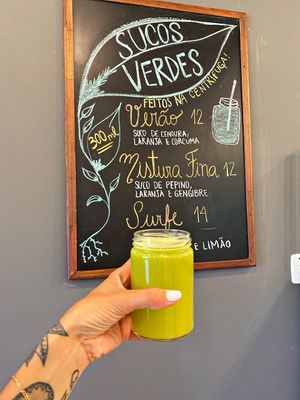 SUCOS
VERDES
FEITOS NA CENTRÍFUGA!
300ml
Verão 12
SUCO DE CENOURA,
LARANJA E CÚRCUMA
Mistura Fina 12
SUCO DE PEPINO,
LARANJA E GENGIBRE
Surfe 14
E LIMÃO